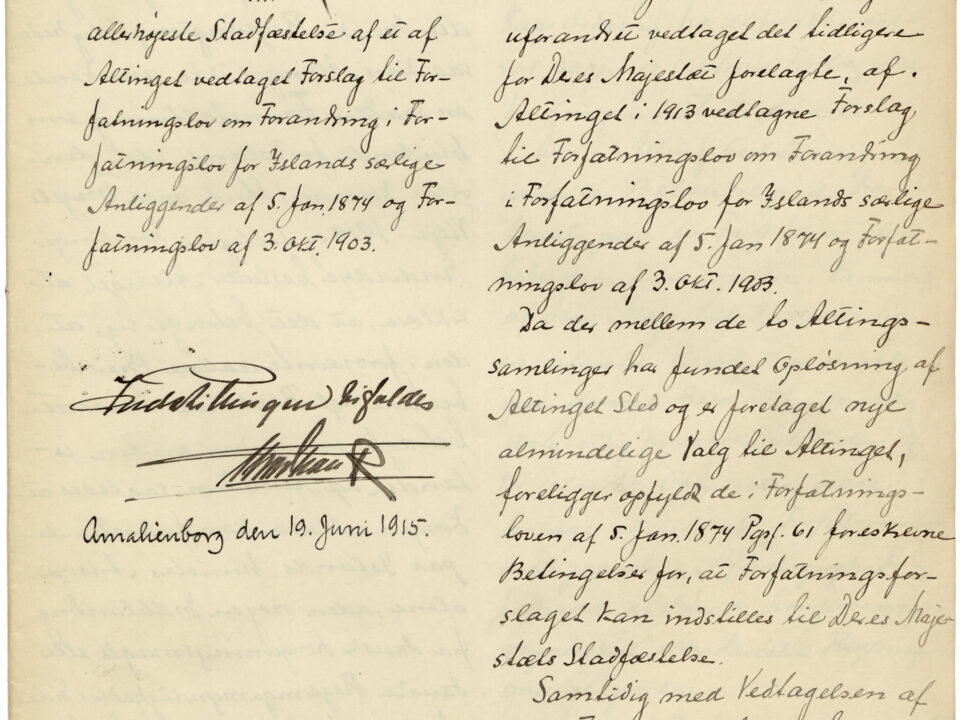 allerhøjeste Stadfæstelse af et af
Altinget vedtaget Forslag til For-
fatningslov om Forandring i For-
fatningslov for Islands særlige
Anliggender af 5. Jan. 1874 og For-
fatningslov af 3. Okt. 1903.
Indstillingen bifaldes
Christian R
Amalienborg den 19. Juni 1915.
uforandret vedtaget det tidligere
for Deres Majestæt forelagte, af
Altinget i 1913 vedtagne Forslag
til Forfatningslov om Forandring
i Forfatningslov for Islands særlige
Anliggender af 5. Jan 1874 og Forfat-
ningslov af 3. Okt. 1903.
Da der mellem de to Altings-
samlinger har fundet Opløsning af
Altinget Sted og er foretaget nye
almindelige Valg til Altinget,
foreligger opfyldt de i Forfatnings-
loven af 5. Jan. 1874 Pgf. 61 foreskrevne
Betingelser for, at Forfatningsfor-
slaget kan indstilles til Deres Maje-
stæts Stadfæstelse.
Samtidig med Vedtagelsen af